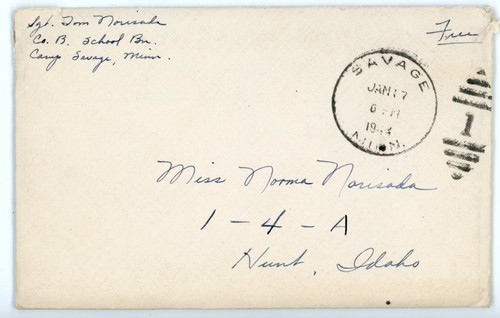 Sgt. Tom Norisada
Co. B. School Bn.
Camp Savage, Minn.
Free
SAVAGE
JAN 17
6 PM
194
MINN.
1
Miss Norma Norisada
1-4-A
Hunt, Idaho